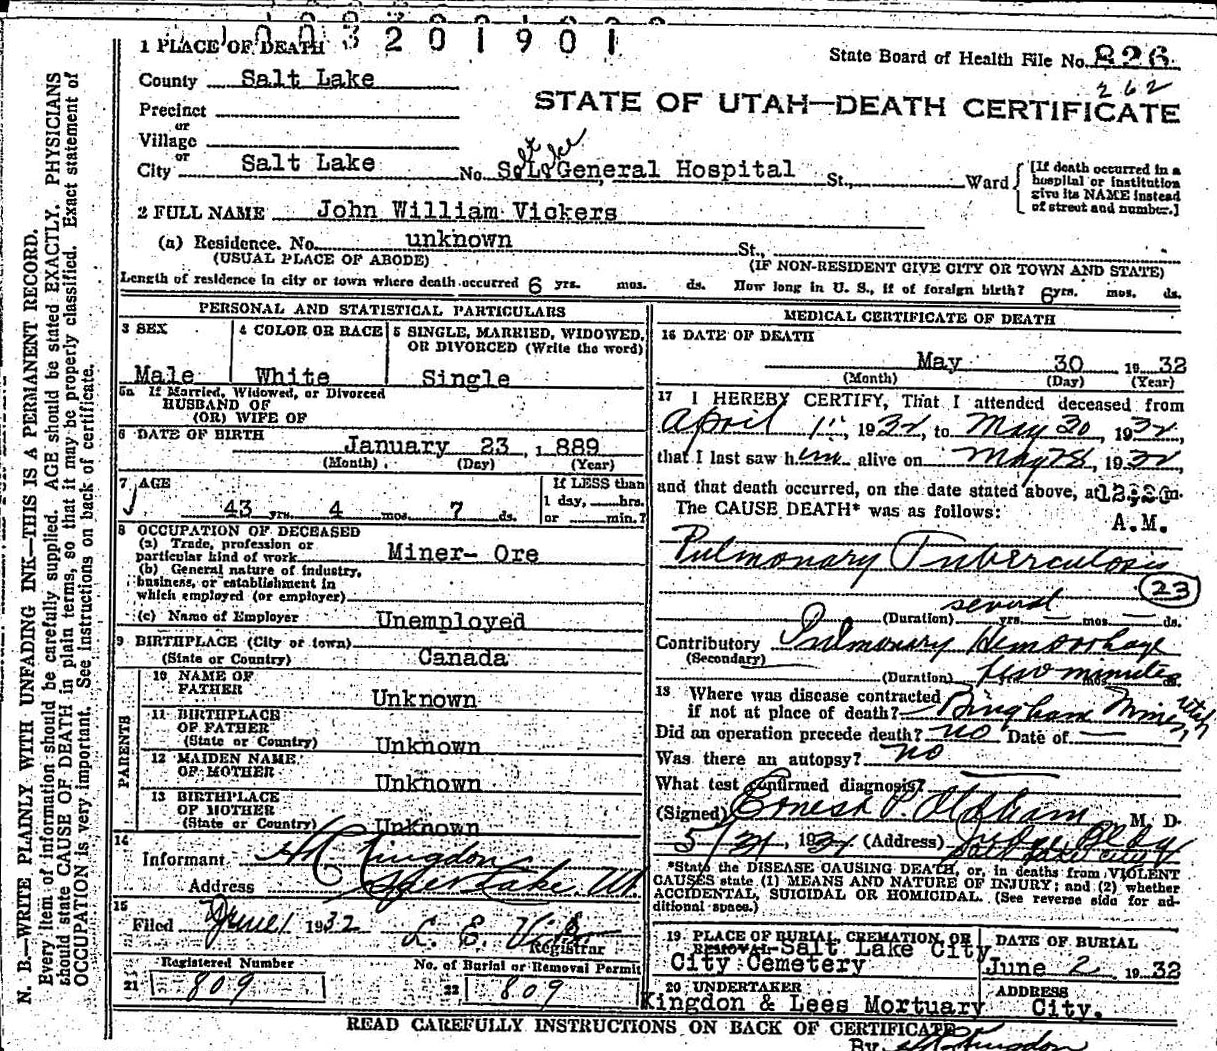 1 0 0 3 2 0 1 9 0 1
1 PLACE OF DEATH
State Board of Health File No. 826
262
County Salt Lake
STATE OF UTAH—DEATH CERTIFICATE
Precinct
or
Village
or
City Salt Lake No. S. L. General Hospital St., Ward
[If death occurred in a hospital or institution give its NAME instead of street and number.]
2 FULL NAME John William Vickers
(a) Residence. No. unknown St.,
(USUAL PLACE OF ABODE) (IF NON-RESIDENT GIVE CITY OR TOWN AND STATE)
Length of residence in city or town where death occurred 6 yrs. mos. ds. How long in U. S., if of foreign birth? 6 yrs. mos. ds.
PERSONAL AND STATISTICAL PARTICULARS
3 SEX
Male
4 COLOR OR RACE
White
5 SINGLE, MARRIED, WIDOWED, OR DIVORCED (Write the word)
Single
5a If Married, Widowed, or Divorced
HUSBAND OF
(OR) WIFE OF
6 DATE OF BIRTH
January 23, 1889
(Month) (Day) (Year)
7 AGE
43 yrs. 4 mos. 7 ds.
If LESS than
1 day, hrs.
or min.?
8 OCCUPATION OF DECEASED
(a) Trade, profession or
particular kind of work Miner- Ore
(b) General nature of industry,
business, or establishment in
which employed (or employer)
(c) Name of Employer Unemployed
9 BIRTHPLACE (City or town)
(State or Country) Canada
PARENTS
10 NAME OF
FATHER Unknown
11 BIRTHPLACE
OF FATHER
(State or Country) Unknown
12 MAIDEN NAME
OF MOTHER Unknown
13 BIRTHPLACE
OF MOTHER
(State or Country) Unknown
14
Informant Kingdon
Address Salt Lake, Ut
15
Filed June 1 1932 L. E.
Registrar
Registered Number
21 809
No. of Burial or Removal Permit
22 809
MEDICAL CERTIFICATE OF DEATH
16 DATE OF DEATH
May 30 1932
(Month) (Day) (Year)
17 I HEREBY CERTIFY, That I attended deceased from
April 1st, 1932, to May 30, 1932,
that I last saw him alive on May 28, 1932,
and that death occurred, on the date stated above, at 12;20 m.
The CAUSE DEATH* was as follows: A.M.
Pulmonary Tuberculosis
23
several
(Duration) yrs. mos. ds.
Contributory Pulmonary Hemorrhage
(Secondary)
(Duration) few minutes
18 Where was disease contracted
if not at place of death? Bingham Mines, Utah
Did an operation precede death? no Date of
Was there an autopsy? no
What test confirmed diagnosis?
(Signed) Ernest P. Oldham M. D.
5/31, 1932 (Address) Judge Bldg
Salt Lake City
*State the DISEASE CAUSING DEATH, or, in deaths from VIOLENT
CAUSES state (1) MEANS AND NATURE OF INJURY; and (2) whether
ACCIDENTAL, SUICIDAL OR HOMICIDAL. (See reverse side for ad-
ditional space.)
19 PLACE OF BURIAL, CREMATION, OR
REMOVAL Salt Lake City
City Cemetery
DATE OF BURIAL
June 2 1932
20 UNDERTAKER
Kingdon & Lees Mortuary
ADDRESS
City.
READ CAREFULLY INSTRUCTIONS ON BACK OF CERTIFICATE
By Kingdon
N. B.—WRITE PLAINLY WITH UNFADING INK—THIS IS A PERMANENT RECORD.
Every item of information should be carefully supplied. AGE should be stated EXACTLY. PHYSICIANS
should state CAUSE OF DEATH in plain terms, so that it may be properly classified. Exact statement of
OCCUPATION is very important. See instructions on back of certificate.